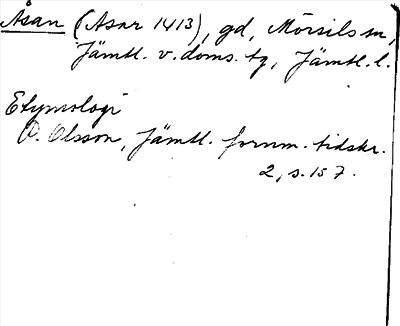 Åsan (Asar 1413), gd, Mörsils sn,
Jämtl. v. doms. tg, Jämtl. l.
Etymologi
P. Olsson, Jämtl. fornm. tidskr.
2, s. 157.